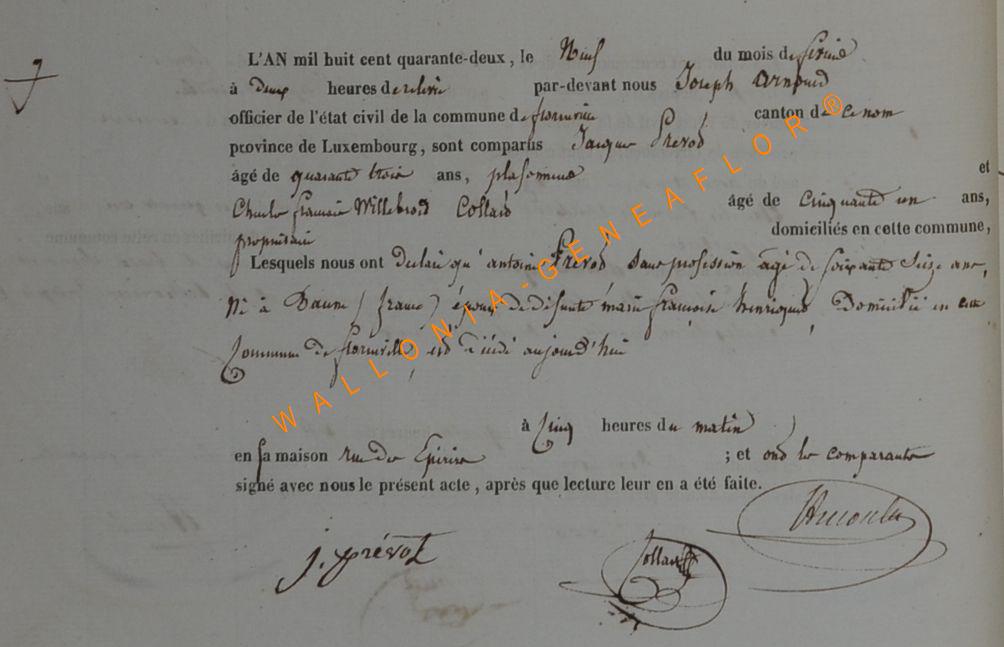 L'AN mil huit cent quarante-deux, le Neuf du mois de fevrier
à Deux heures de relevée par-devant nous Joseph Arnould
officier de l'état civil de la commune de florenville canton de ce nom
province de Luxembourg, sont comparus Jacques Prevot
âgé de quarante trois ans, plafonneur et
Charles françois Willebrord Collard âgé de Cinquante un ans,
propriétaire domiciliés en cette commune,
Lesquels nous ont déclaré qu'antoine Prevot Sans profession âgé de Soixante Seize ans,
Né à (france) époux de défunte marie françoise henrioque, Domicilié en cette
Commune de florenville, est décédé aujourd'hui
à Cinq heures du matin
en sa maison rue des ; et ont les comparants
signé avec nous le présent acte, après que lecture leur en a été faite.
J. prévot
Collard
WALLONIA-GENEAFLOR®